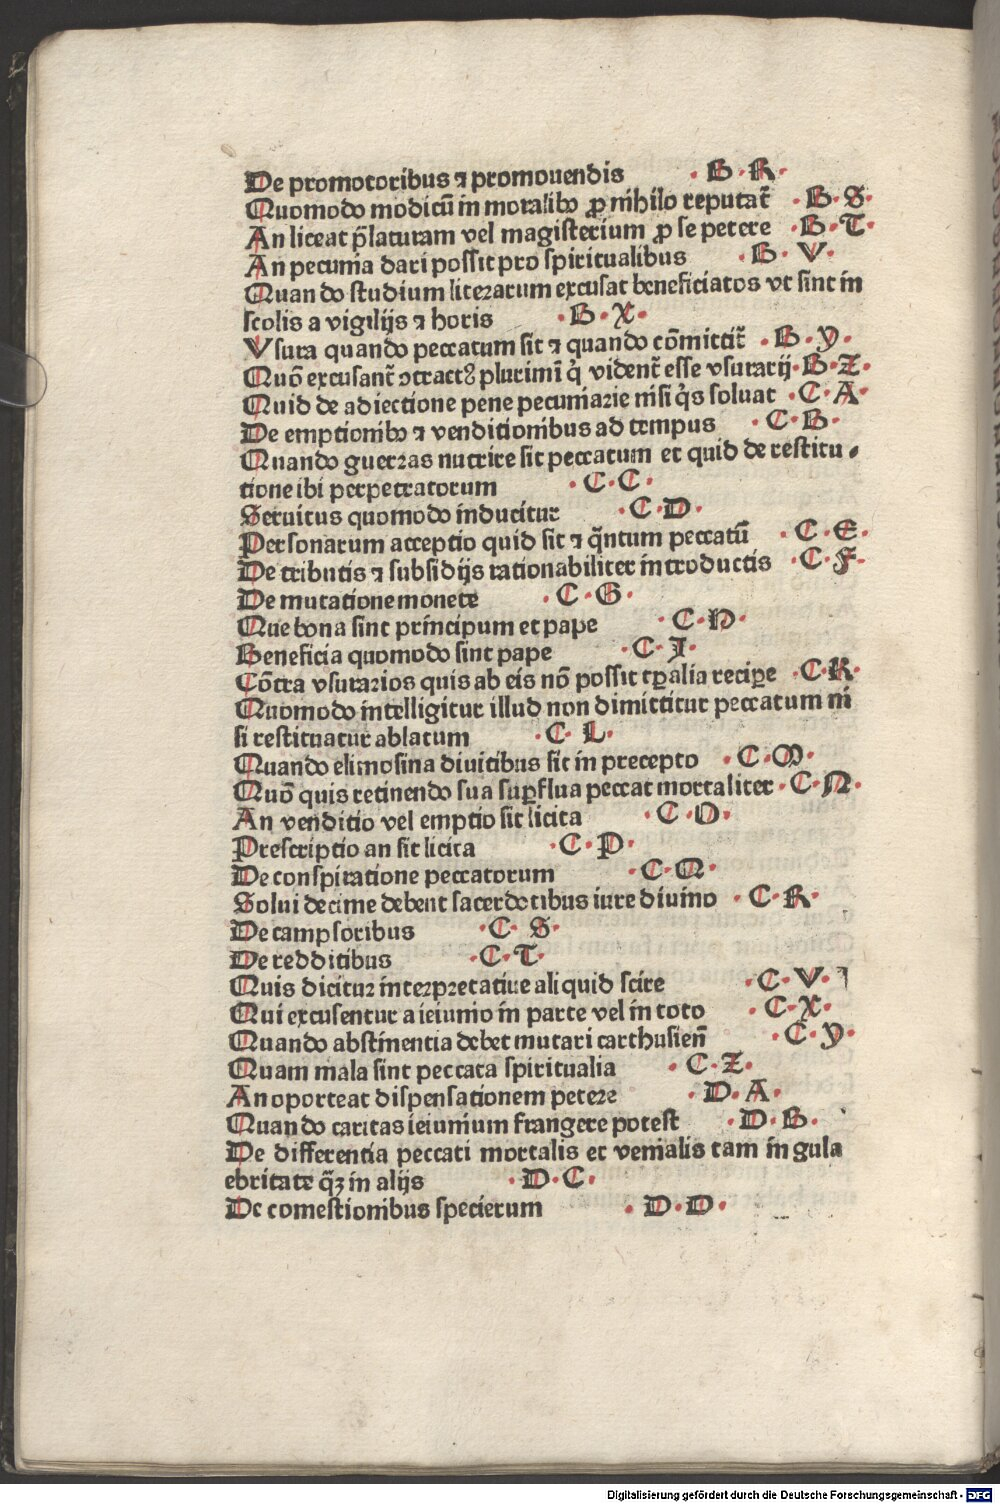 De promotoribus ⁊ promouendis ·B·R·
Quomodo modicū in moralibꝰ ꝓ nihilo reputat̄ ·B·S·
An liceat p̄laturam vel magisterium ꝓ se petere ·B·T·
An pecunia dari possit pro spiritualibus ·B·V·
Quando studium literarum excusat beneficiatos vt sint in
scolis a vigilijs ⁊ horis ·B·X·
Vsura quando peccatum sit ⁊ quando cōmittit̄ ·B·Y·
Quō excusant̄ ↄtractꝰ plurimī q̇ vident̄ esse vsurarij·B·Z·
Quid de adiectione pene pecuniarie nisi q̇s soluat ·C·A·
De emptionibꝰ ⁊ venditionibus ad tempus ·C·B·
Quando guerras nutrire sit peccatum et quid de restitu⸗
tione ibi perpetratorum ·C·C·
Seruitus quomodo inducitur ·C·D·
Personarum acceptio quid sit ⁊ q̄ntum peccatū ·C·E·
De tributis ⁊ subsidijs rationabiliter introductis ·C·F·
De mutatione monete ·C·G·
Que bona sint principum et pape ·C·H·
Beneficia quomodo sint pape ·C·I·
Cōtra vsurarios quis ab eis nō possit tꝑalia recipe ·C·K·
Quomodo intelligitur illud non dimittitur peccatum ni
si restituatur ablatum ·C·L·
Quando elimosina diuitibus sit in precepto ·C·M·
Quō quis retinendo sua suꝑflua peccat mortaliter ·C·N·
An venditio vel emptio sit licita ·C·O·
Prescriptio an sit licita ·C·P·
De conspiratione peccatorum ·C·Q·
Solui decime debent sacerdotibus iure diuino ·C·R·
De campsoribus ·C·S·
De redditibus ·C·T·
Quis dicitur interpretatiue aliquid scire ·C·V·
Qui excusentur a ieiunio in parte vel in toto ·C·X·
Quando abstinentia debet mutari carthusien̄ ·C·Y·
Quam mala sint peccata spiritualia ·C·Z·
An oporteat dispensationem petere ·D·A·
Quando caritas ieiunium frangere potest ·D·B·
De differentia peccati mortalis et venialis tam in gula
ebritate q̄ꝫ in alijs ·D·C·
De comestionibus specierum ·D·D·
Digitalisierung gefördert durch die Deutsche Forschungsgemeinschaft - DFG